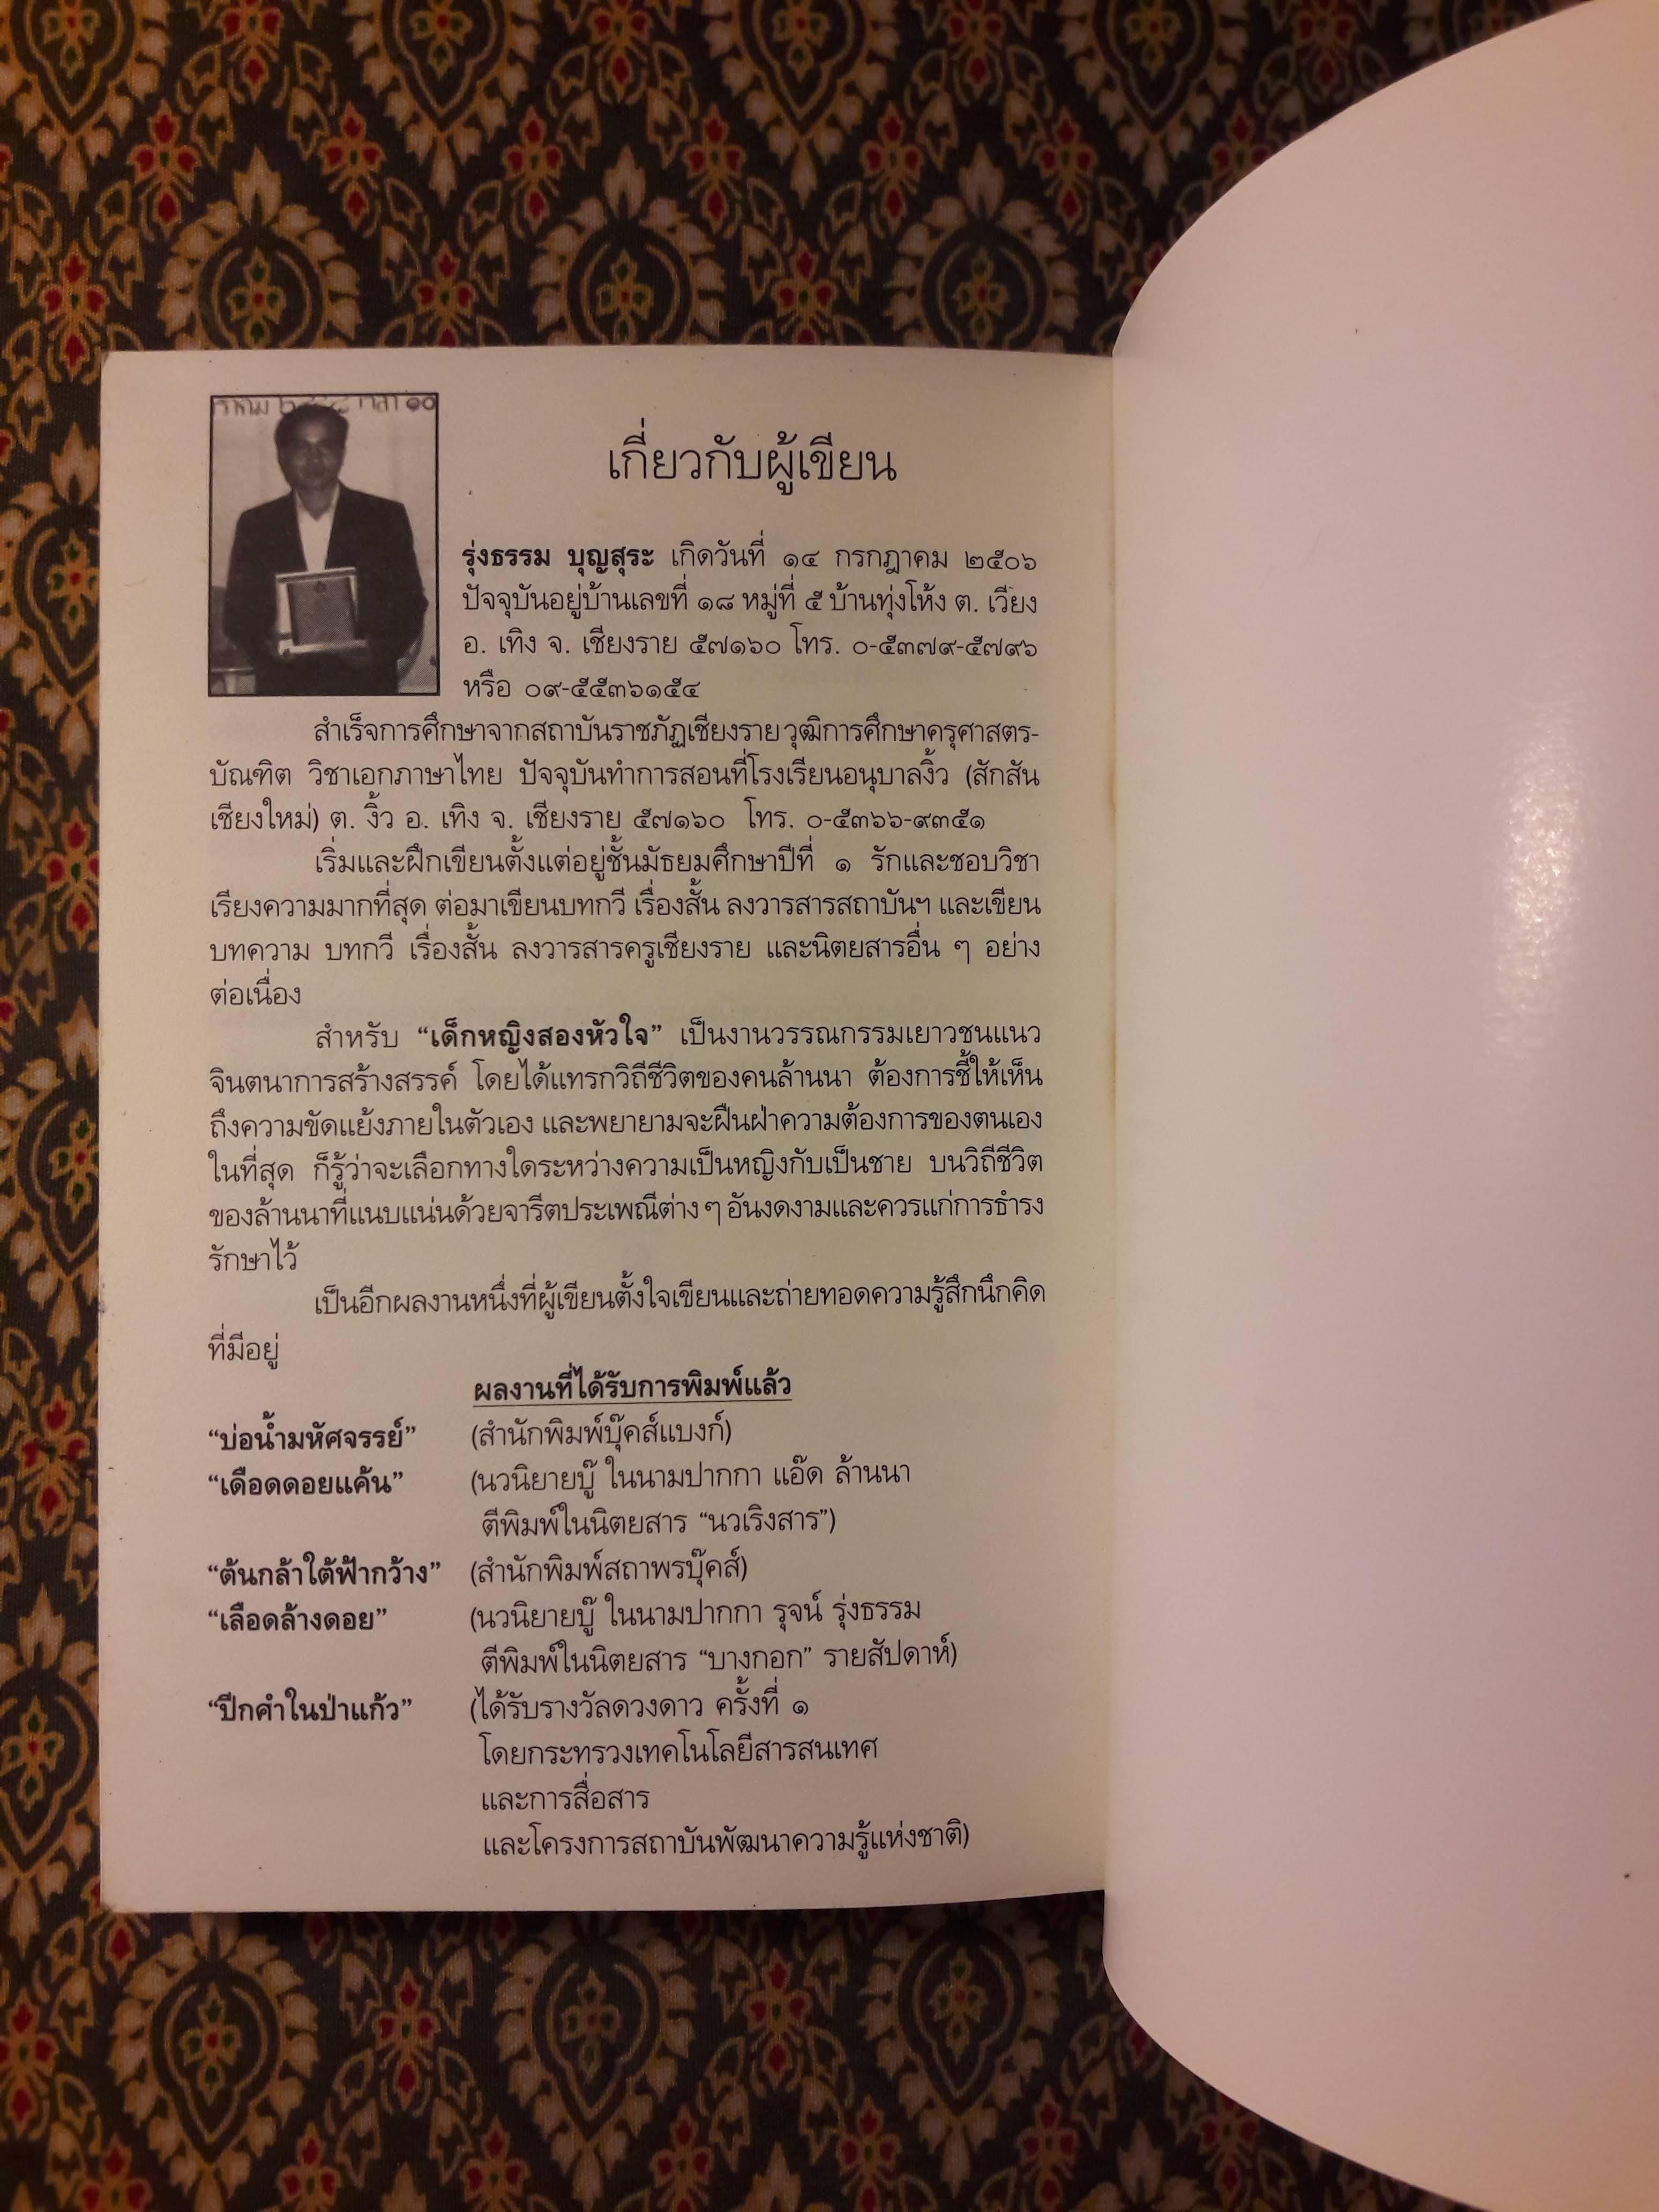 เกี่ยวกับผู้เขียน
รุ่งธรรม บุญสุระ เกิดวันที่ ๑๔ กรกฎาคม ๒๕๐๖
ปัจจุบันอยู่บ้านเลขที่ ๑๘ หมู่ที่ ๕ บ้านทุ่งโห้ง ต. เวียง
อ. เทิง จ. เชียงราย ๕๗๑๖๐ โทร. ๐-๕๓๗๙-๕๗๙๖
หรือ ๐๙-๕๕๓๖๑๕๔
สำเร็จการศึกษาจากสถาบันราชภัฏเชียงราย วุฒิการศึกษาครุศาสตร-
บัณฑิต วิชาเอกภาษาไทย ปัจจุบันทำการสอนที่โรงเรียนอนุบาลงิ้ว (สักสัน
เชียงใหม่) ต. งิ้ว อ. เทิง จ. เชียงราย ๕๗๑๖๐ โทร. ๐-๕๓๖๖-๙๓๕๑
เริ่มและฝึกเขียนตั้งแต่อยู่ชั้นมัธยมศึกษาปีที่ ๑ รักและชอบวิชา
เรียงความมากที่สุด ต่อมาเขียนบทกวี เรื่องสั้น ลงวารสารสถาบันฯ และเขียน
บทความ บทกวี เรื่องสั้น ลงวารสารครูเชียงราย และนิตยสารอื่น ๆ อย่าง
ต่อเนื่อง
สำหรับ “เด็กหญิงสองหัวใจ” เป็นงานวรรณกรรมเยาวชนแนว
จินตนาการสร้างสรรค์ โดยได้แทรกวิถีชีวิตของคนล้านนา ต้องการชี้ให้เห็น
ถึงความขัดแย้งภายในตัวเอง และพยายามจะฝืนฝ่าความต้องการของตนเอง
ในที่สุด ก็รู้ว่าจะเลือกทางใดระหว่างความเป็นหญิงกับเป็นชาย บนวิถีชีวิต
ของล้านนาที่แนบแน่นด้วยจารีตประเพณีต่าง ๆ อันงดงามและควรแก่การธำรง
รักษาไว้
เป็นอีกผลงานหนึ่งที่ผู้เขียนตั้งใจเขียนและถ่ายทอดความรู้สึกนึกคิด
ที่มีอยู่
ผลงานที่ได้รับการพิมพ์แล้ว
“บ่อน้ำมหัศจรรย์” (สำนักพิมพ์บุ๊คส์แบงก์)
“เดือดดอยแค้น” (นวนิยายบู๊ ในนามปากกา แอ๊ด ล้านนา
ตีพิมพ์ในนิตยสาร “นวเริงสาร”)
“ต้นกล้าใต้ฟ้ากว้าง” (สำนักพิมพ์สถาพรบุ๊คส์)
“เลือดล้างดอย” (นวนิยายบู๊ ในนามปากกา รุจน์ รุ่งธรรม
ตีพิมพ์ในนิตยสาร “บางกอก” รายสัปดาห์)
“ปีกคำในป่าแก้ว” (ได้รับรางวัลดวงดาว ครั้งที่ ๑
โดยกระทรวงเทคโนโลยีสารสนเทศ
และการสื่อสาร
และโครงการสถาบันพัฒนาความรู้แห่งชาติ)